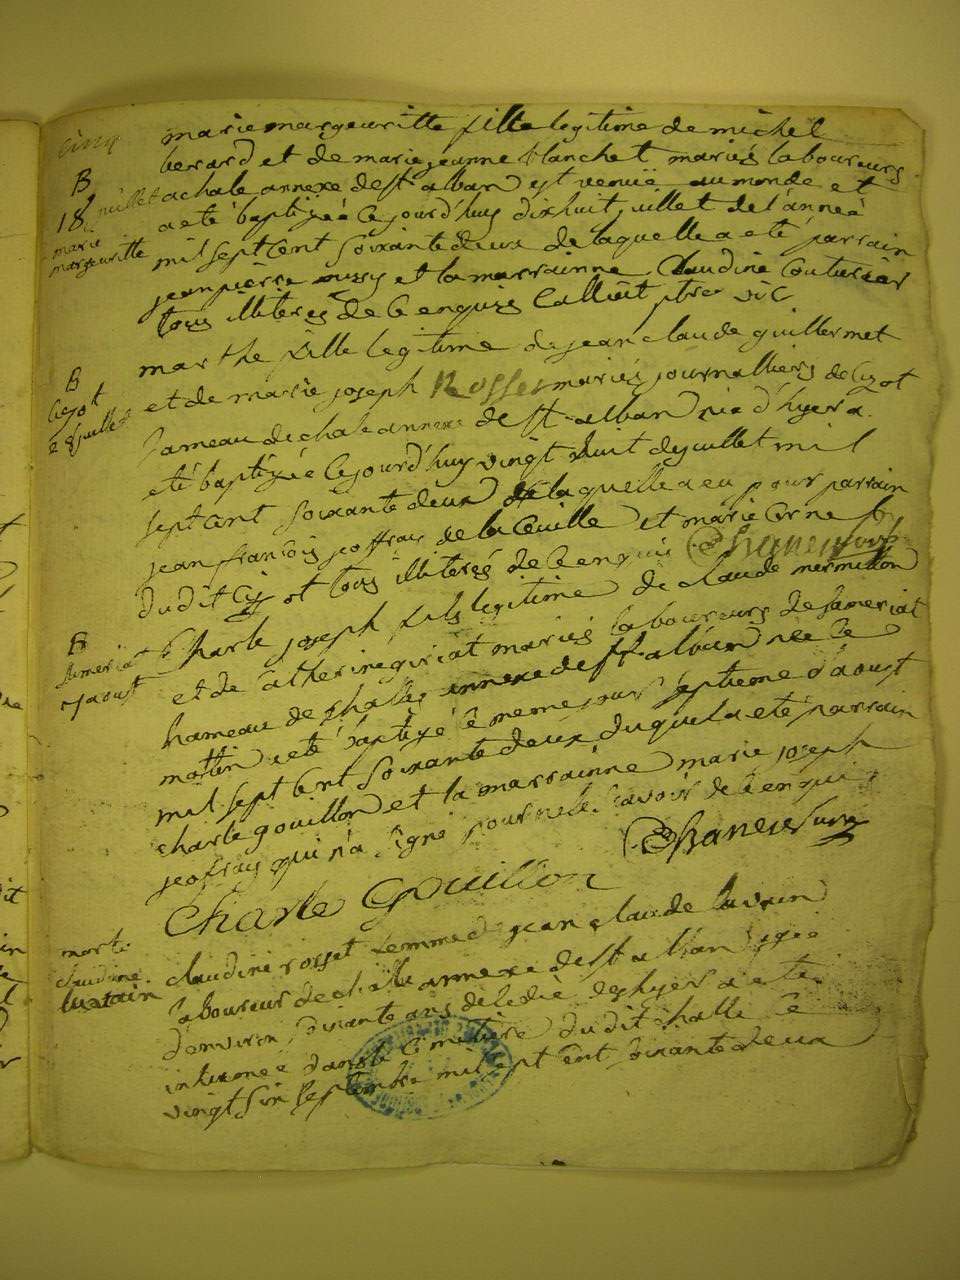 cinq
marie margeuritte fille legitime de michel
berard et de marie jeanne blanchet mariés laboureurs
B
18 juillet
marie
margeuritte
a chale annexe de st alban est venuë au monde et
a eté baptizeé ce jourd'huy dixhuit juillet de l'anneé
mil sept cent soixante deux de laquelle a eté parrain
jean pierre et la marrainne Claudine couturier
tous illiteres de ce enquis Calliat ptre vic
B
Cizot
28 juillet
marthe fille legitime de jean claude guillermet
et de marie joseph Rosset mariés journalliers de Cizot
hameau de chale annexe de st alban née d'hyer a
eté baptizée ce jourd'huy vingt huit de juillet mil
sept cent soixante deux de laquelle a eu pour parrain
jean francois jeoffray de la Ceuille et marie
dudit Cizot tous illiterés de ce enquis
B
Sameriat
7 aoust
Charle joseph fils legitime de claude mermillon
et de catherine giriat mariés laboureurs de Sameriat
hameau de challe annexe de st alban née ce
mattin a eté baptizé ce meme jour septieme d'aoust
mil sept cent soixante deux duquel a eté parrain
charle gouillon et la marrainne marie joseph
jeoffray qui n'a signé pour ne le scavoir de ce enqui
Charle Gouillon
mort
claudine
claudine rosset femme de jean claude
laboureur de challe annexe de st alban ageé
d'environ soixante ans decedeé d'hyer a eté
inhumeé dans le cimetiere dudit challe ce
vingt six septembre mil sept cent soixante deux